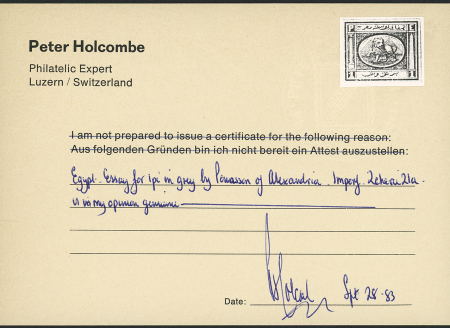 Peter Holcombe
Philatelic Expert
Luzern / Switzerland
I am not prepared to issue a certificate for the following reason:
Aus folgenden Gründen bin ich nicht bereit ein Attest auszustellen:
Egypt. Essay for 1pi in grey by Penasson of Alexandria. Imperf. Zeheri 21a.
is in my opinion genuine
Date: Sept 28-83